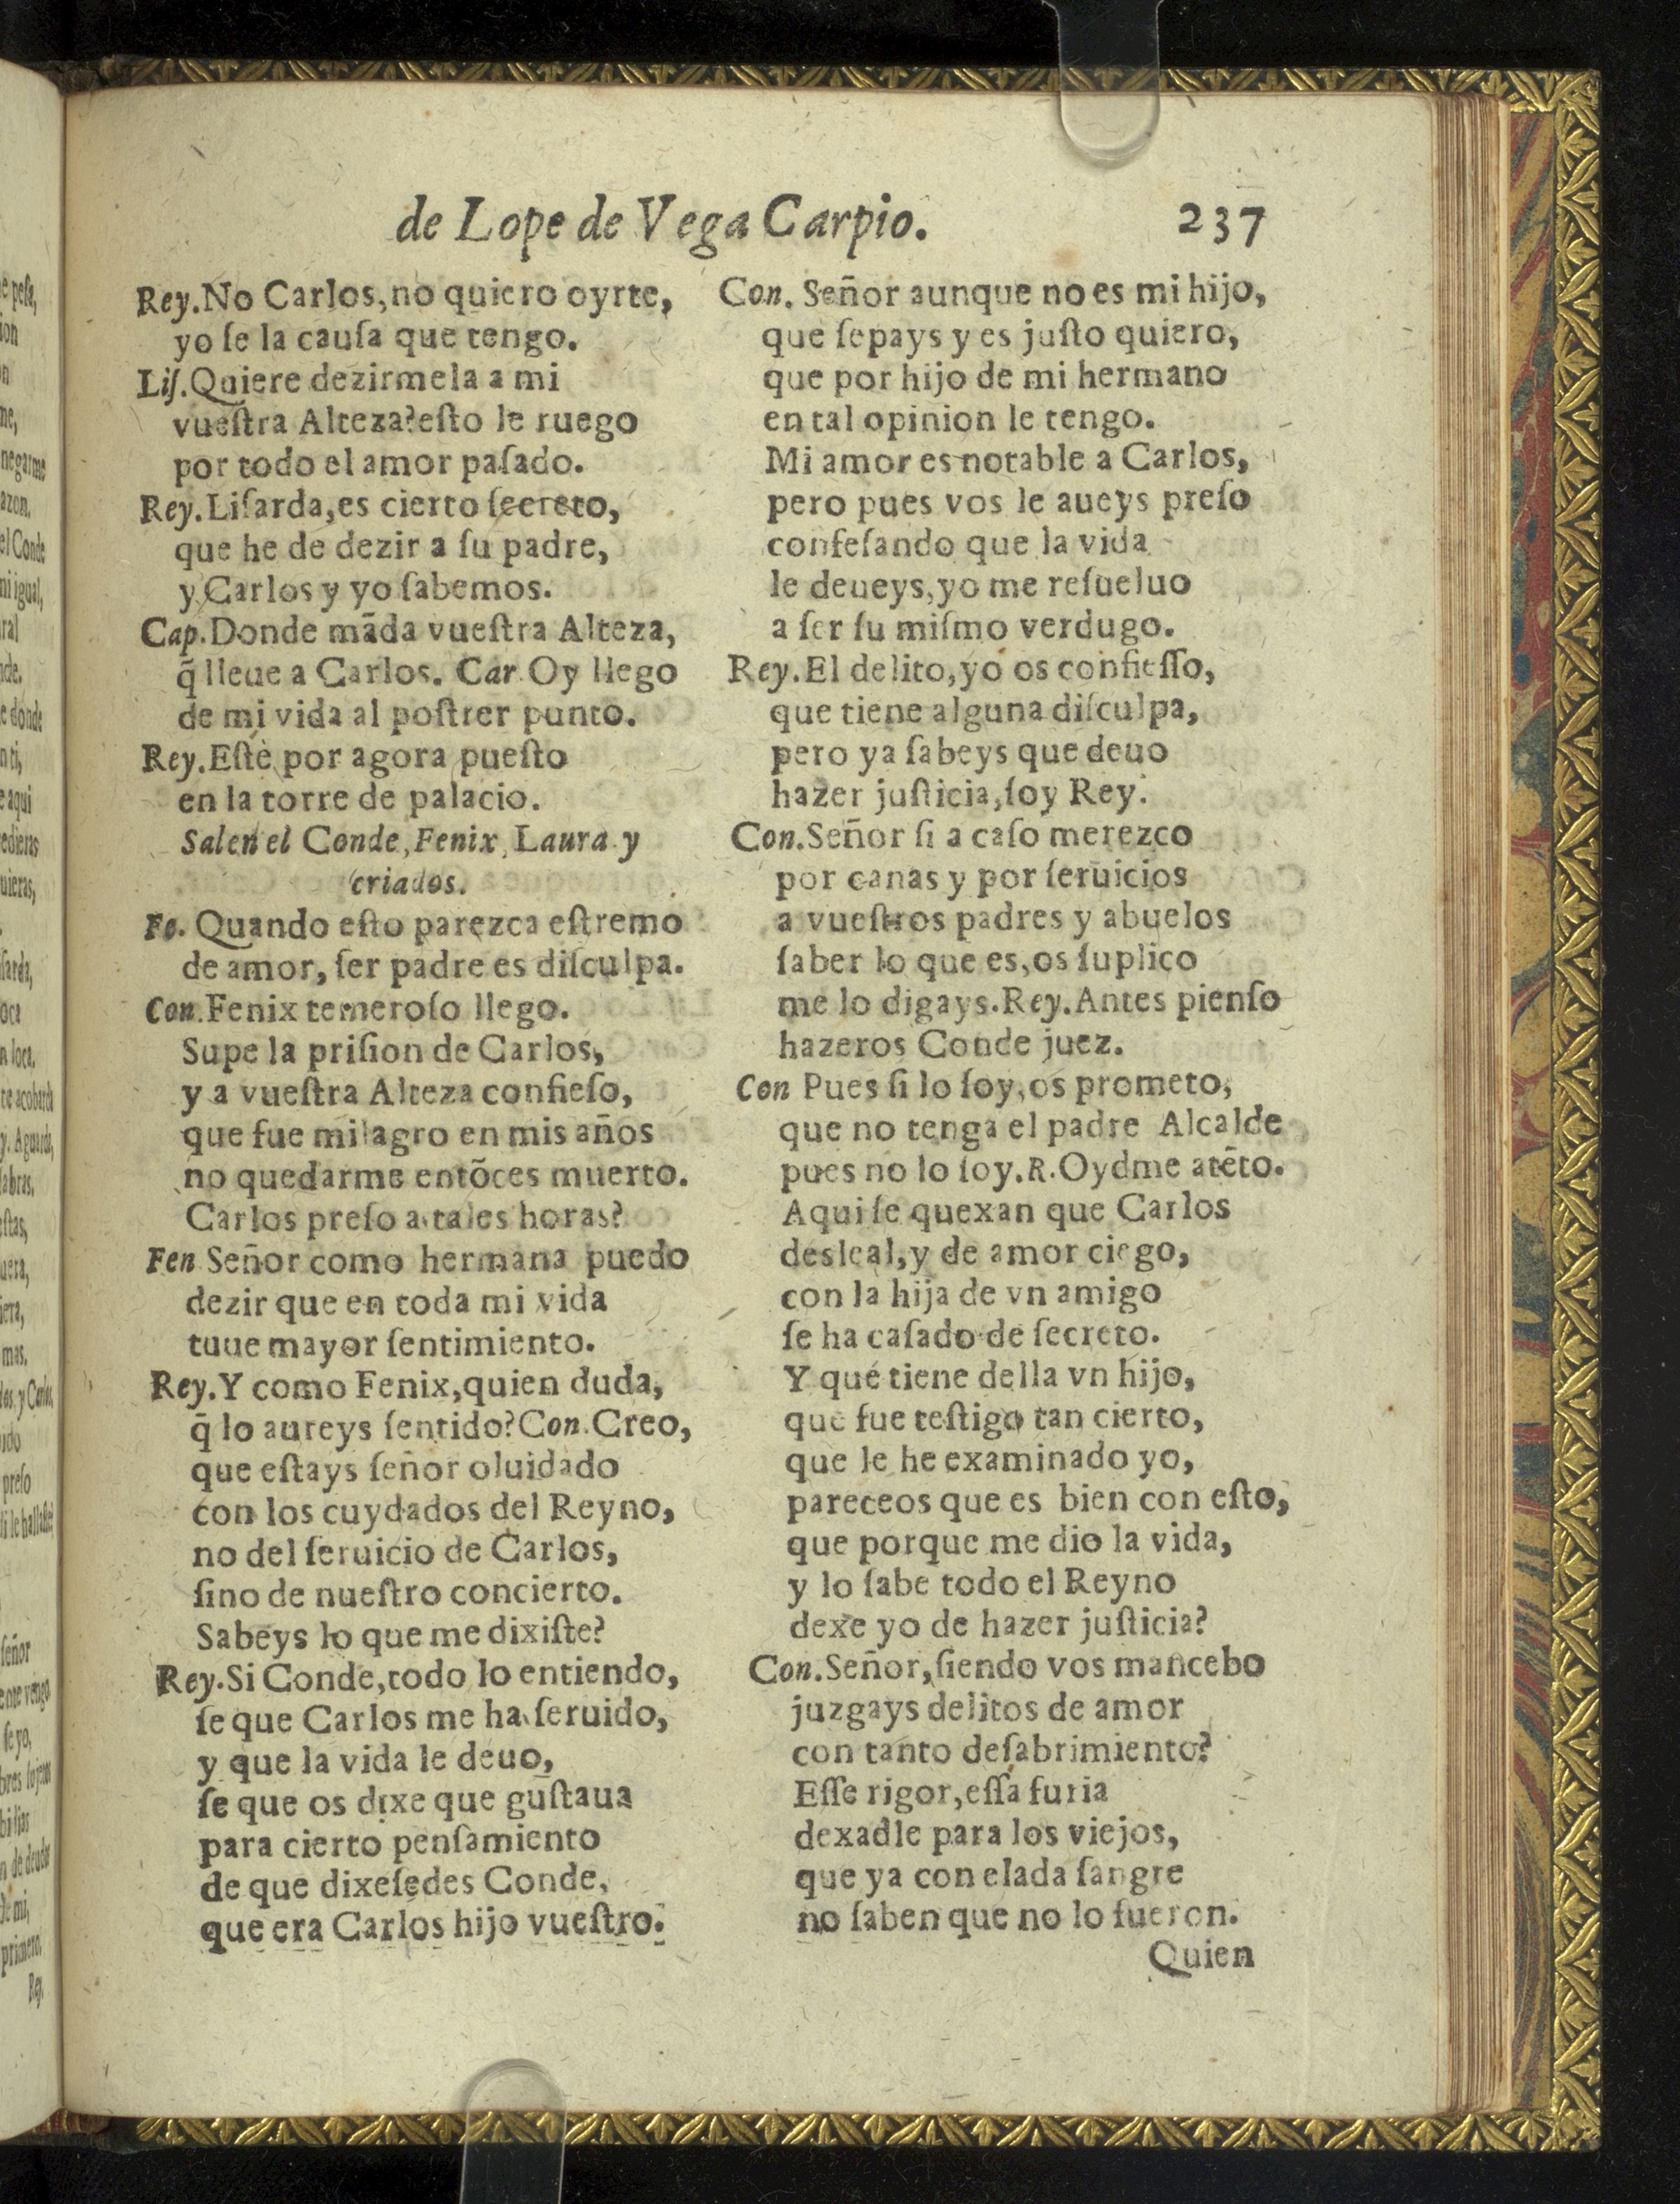 de Lope de Vega Carpio. 237
Rey.No Carlos,no quiero oyrte,
yo ſe la cauſa que tengo.
Liſ.Quiere dezirmela a mi
vueſtra Alteza?eſto le ruego
por todo el amor paſado.
Rey.Liſarda,es cierto ſecreto,
que he de dezir a ſu padre,
y Carlos y yo ſabemos.
Cap.Donde mãda vueſtra Alteza,
q̃ lleue a Carlos. Car.Oy llego
de mi vida al poſtrer punto.
Rey.Eſtè por agora pueſto
en la torre de palacio.
Salen el Conde,Fenix,Laura y
criados.
Fe. Quando eſto parezca eſtremo
de amor, ſer padre es diſculpa.
Con.Fenix temeroſo llego.
Supe la priſion de Carlos,
y a vueſtra Alteza confieſo,
que fue milagro en mis años
no quedarme entõces muerto.
Carlos preſo a tales horas?
Fen Señor como hermana puedo
dezir que en toda mi vida
tuue mayor ſentimiento.
Rey.Y como Fenix,quien duda,
q̃ lo aureys ſentido?Con.Creo,
que eſtays ſeñor oluidado
con los cuydados del Reyno,
no del ſeruicio de Carlos,
ſino de nueſtro concierto.
Sabeys lo que me dixiſte?
Rey.Si Conde,todo lo entiendo,
ſe que Carlos me ha ſeruido,
y que la vida le deuo,
ſe que os dixe que guſtaua
para cierto penſamiento
de que dixeſedes Conde,
que era Carlos hijo vueſtro.
Con. Señor aunque no es mi hijo,
que ſepays y es juſto quiero,
que por hijo de mi hermano
en tal opinion le tengo.
Mi amor es notable a Carlos,
pero pues vos le aueys preſo
confeſando que la vida
le deueys,yo me reſueluo
a ſer ſu miſmo verdugo.
Rey.El delito,yo os confieſſo,
que tiene alguna diſculpa,
pero ya ſabeys que deuo
hazer juſticia,ſoy Rey.
Con.Señor ſi a caſo merezco
por canas y por ſeruicios
a vueſtros padres y abuelos
ſaber lo que es,os ſuplico
me lo digays.Rey.Antes pienſo
hazeros Conde juez.
Con Pues ſi lo ſoy,os prometo,
que no tenga el padre Alcalde
pues no lo ſoy.R.Oydme atẽto.
Aqui ſe quexan que Carlos
desleal,y de amor ciego,
con la hija de vn amigo
ſe ha caſado de ſecreto.
Y qué tiene della vn hijo,
que fue teſtigo tan cierto,
que le he examinado yo,
pareceos que es bien con eſto,
que porque me dio la vida,
y lo ſabe todo el Reyno
dexe yo de hazer juſticia?
Con.Señor,ſiendo vos mancebo
juzgays delitos de amor
con tanto deſabrimiento?
Eſſe rigor,eſſa furia
dexadle para los viejos,
que ya con elada ſangre
no ſaben que no lo fueron.
Quien